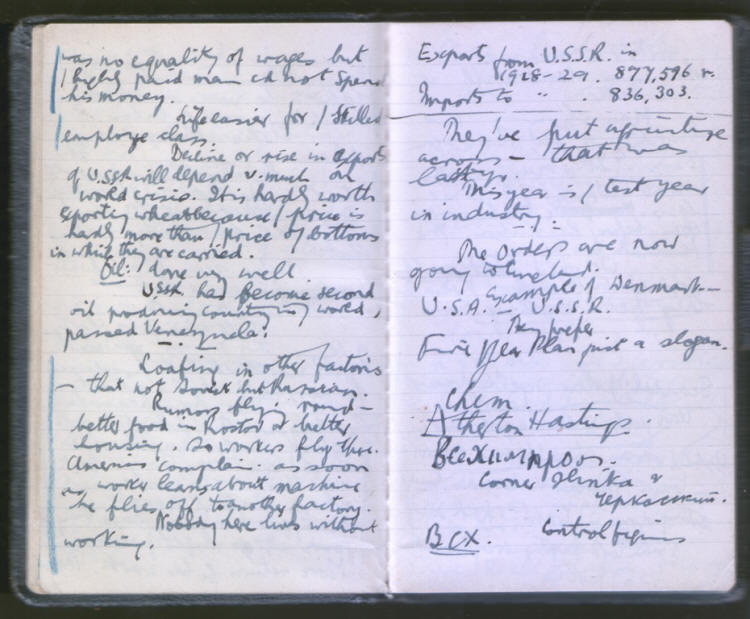 was no equality of wages but
/ highly paid man cd not spend
his money.
Life easier for / skilled
employee class.
Decline or rise in exports
of USSR will depend v. much on
world crisis. It is hardly worth
exporting wheat because / price is
hardly more than / price of bottoms
in which they are carried.
Oil: / done very well
USSR had become second
oil producing country in world,
passed Venezuela.
Loafing in other factories
– that not Soviet but Russian.
Rumors flying round –
better food in Rostov or better
housing. So workers fly there.
Americans complain. as soon
as worker learns about machine
he flies off to another factory.
Nobody here lives without
working.
Exports from U.S.S.R. in
1928-29. 877,596 r.
Imports to " . 836,303.
They've put agriculture
across – that was
last yr.
This year is / test year
in industry.
The Orders are now
going to
Examples of Denmark –
U.S.A. – U.S.S.R.
They prefer
Five Year Plan just a slogan.
Chem.
Atherton Hastings.
Corner Ilinka &
Черкасский.
ВСХ. Control figures